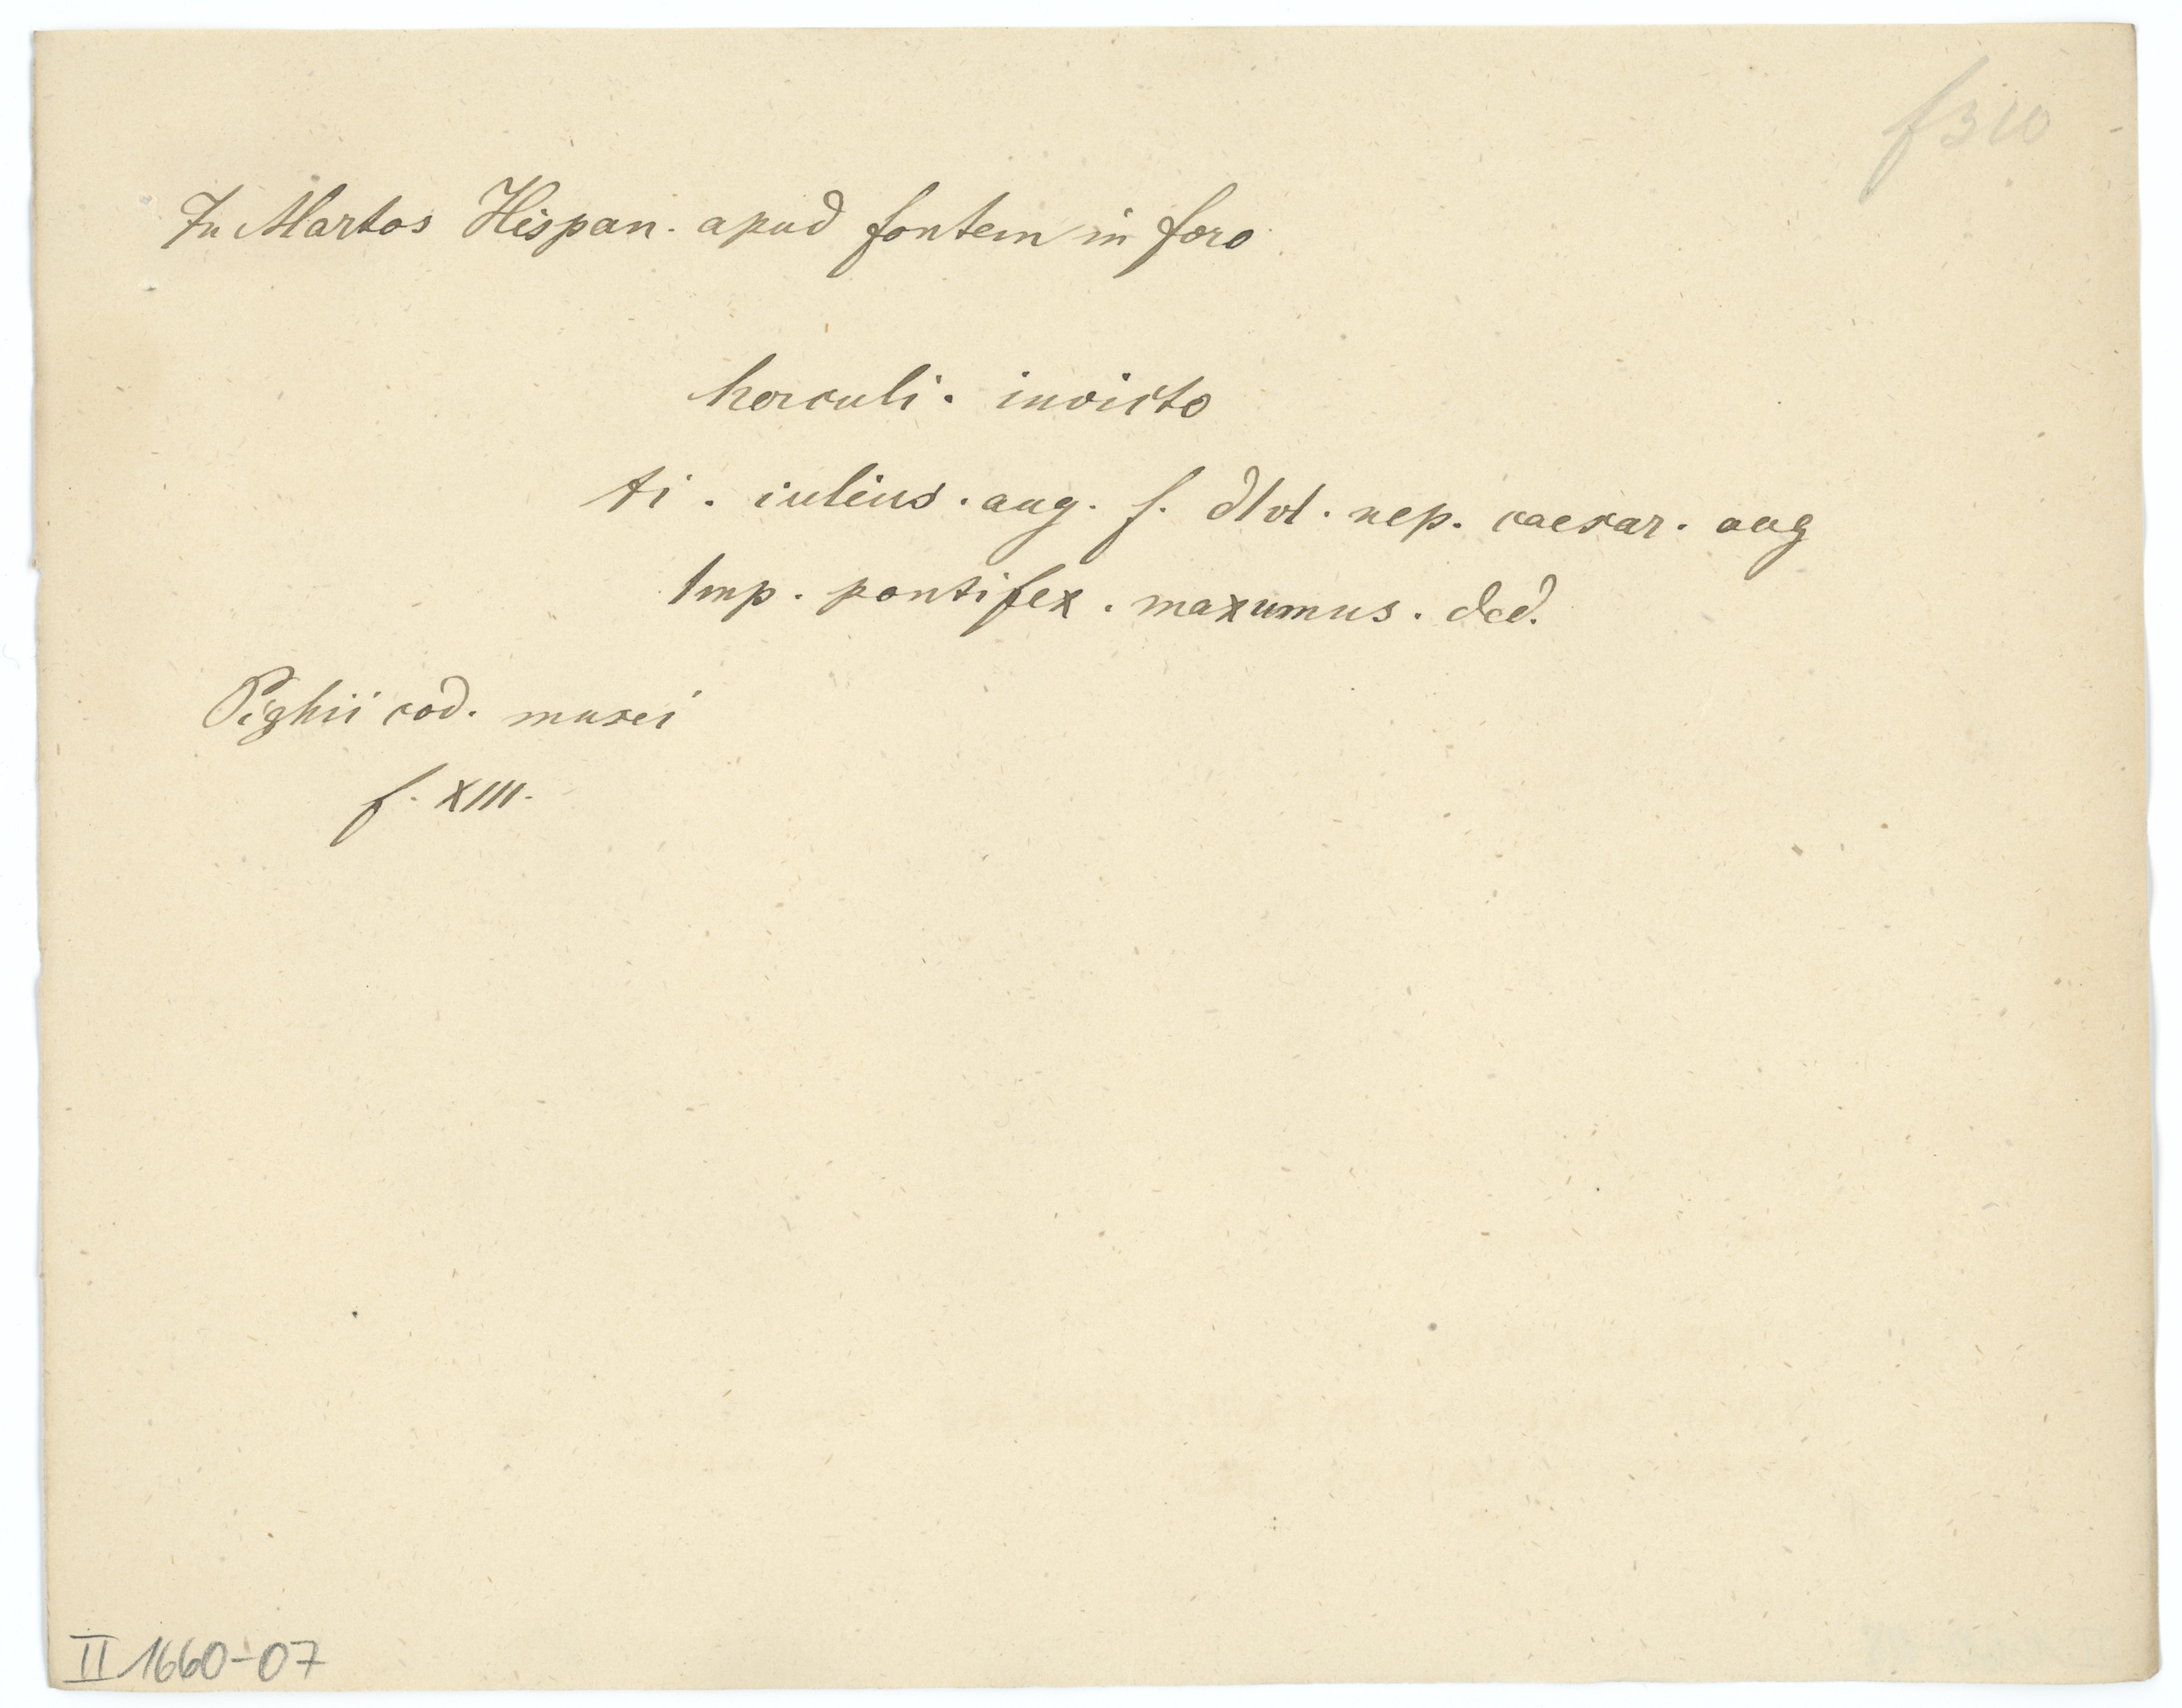 f 310
In Martos Hispan. apud fontem in foro
herculi . invicto
ti . iulius . aug . f . dIvI . nep . caesar . aug
Imp . pontifex . maxumus . ded.
Pighii cod. musei
f. XIII.
II 1660-07